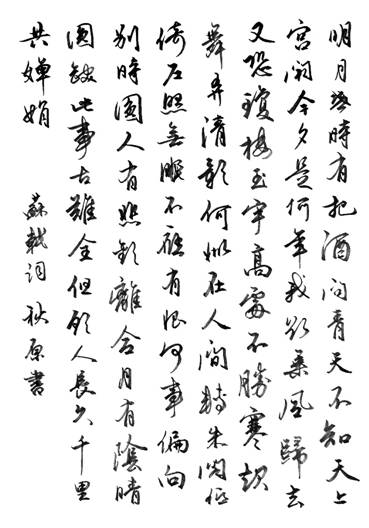 明月幾時有把酒问青天不知天上
宮闕今夕是何年我欲乘风歸去
又恐瓊樓玉宇高處不勝寒起
舞弄清影何似在人间轉朱阁低
绮户照無眠不應有恨何事偏向
别時圓人有悲歡離合月有陰晴
圓缺此事古難全但願人長久千里
共嬋娟 蘇軾词 秋原書